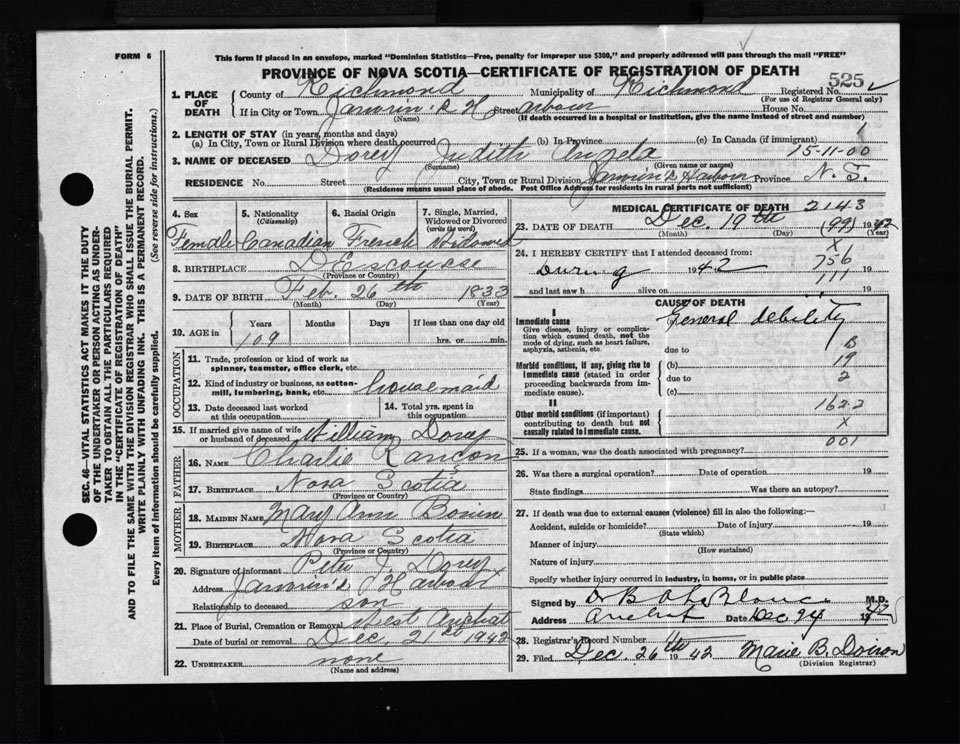 FORM 6
This form if placed in an envelope, marked "Dominion Statistics—Free, penalty for improper use $300," and properly addressed will pass through the mail "FREE"
PROVINCE OF NOVA SCOTIA—CERTIFICATE OF REGISTRATION OF DEATH
525
1. PLACE OF DEATH
County of Richmond Municipality of Richmond Registered No.
(For use of Registrar General only)
If in City or Town Janvrin's Harbour Street House No.
(Name) (If death occurred in a hospital or institution, give the name instead of street and number)
2. LENGTH OF STAY (in years, months and days)
(a) In City, Town or Rural Division where death occurred (b) In Province (c) In Canada (if immigrant) 1
15-11-00
3. NAME OF DECEASED Dorey Judith Angela
(Surname) (Given name or names)
RESIDENCE No. Street City, Town or Rural Division Janvrin's Harbour Province N.S.
(Residence means usual place of abode. Post Office Address for residents in rural parts not sufficient)
4. Sex Female
5. Nationality (Citizenship) Canadian
6. Racial Origin French
7. Single, Married, Widowed or Divorced (write the word) Widowed
8. BIRTHPLACE DEscousse
(Province or Country)
9. DATE OF BIRTH Feb. 26th 1833
(Month) (Day) (Year)
10. AGE in Years Months Days If less than one day old
109 hrs. or min.
OCCUPATION
11. Trade, profession or kind of work as spinner, teamster, office clerk, etc.
12. Kind of industry or business, as cotton-mill, lumbering, bank, etc. housemaid
13. Date deceased last worked at this occupation
14. Total yrs. spent in this occupation
15. If married give name of wife or husband of deceased William Dorey
FATHER
16. NAME Charlie Rançon
17. BIRTHPLACE Nova Scotia
(Province or Country)
MOTHER
18. MAIDEN NAME Mary Ann Bonin
19. BIRTHPLACE Nova Scotia
(Province or Country)
20. Signature of informant Peter J. Dorey
Address Janvrin's Harbour
Relationship to deceased son
21. Place of Burial, Cremation or Removal West Arichat
Date of burial or removal Dec. 21st 1942
22. UNDERTAKER none
(Name and address)
MEDICAL CERTIFICATE OF DEATH 2143
23. DATE OF DEATH Dec. 19th (99) 1942
(Month) (Day) (Year)
24. I HEREBY CERTIFY that I attended deceased from: X
During 1942 756 19
and last saw h alive on 111 19
CAUSE OF DEATH
I
Immediate cause
Give disease, injury or complication which caused death, not the mode of dying, such as heart failure, asphyxia, asthenia, etc.
General debility
due to
B
Morbid conditions, if any, giving rise to immediate cause (stated in order proceeding backwards from immediate cause).
(b) 19
due to 2
(c)
II
1622
Other morbid conditions (if important) contributing to death but not causally related to immediate cause.
X
001
25. If a woman, was the death associated with pregnancy?
26. Was there a surgical operation? Date of operation 19
State findings Was there an autopsy?
27. If death was due to external causes (violence) fill in also the following:—
Accident, suicide or homicide? Date of injury 19
(State which)
Manner of injury
(How sustained)
Nature of injury
Specify whether injury occurred in industry, in home, or in public place
Signed by LeBlanc M.D.
Address Arichat Date Dec 24 1942
28. Registrar's Record Number
29. Filed Dec. 26th 1942 Marie B. Doiron
(Division Registrar)
SEC. 46—VITAL STATISTICS ACT MAKES IT THE DUTY
OF THE UNDERTAKER OR PERSON ACTING AS UNDER-
TAKER TO OBTAIN ALL THE PARTICULARS REQUIRED
IN THE "CERTIFICATE OF REGISTRATION OF DEATH"
AND TO FILE THE SAME WITH THE DIVISION REGISTRAR WHO SHALL ISSUE THE BURIAL PERMIT.
WRITE PLAINLY WITH UNFADING INK. THIS IS A PERMANENT RECORD.
Every item of information should be carefully supplied. (See reverse side for instructions.)